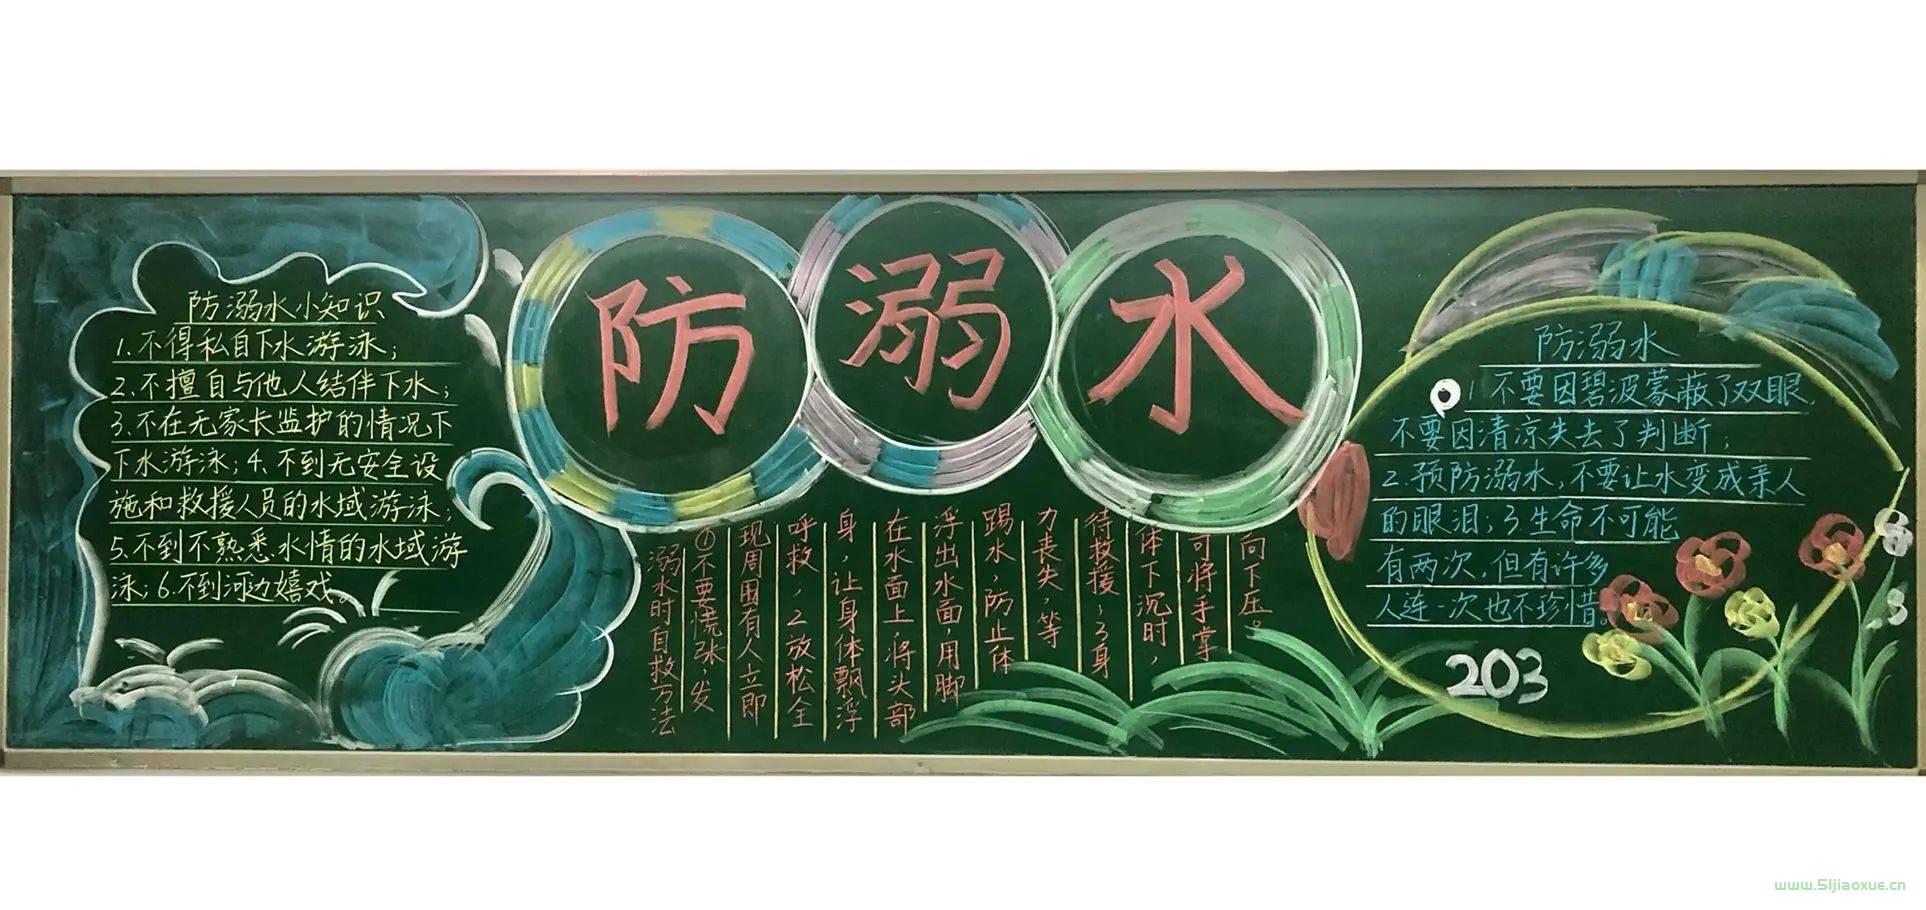 防溺水
防溺水小知识
1.不得私自下水游泳；
2.不擅自与他人结伴下水；
3.不在无家长监护的情况下
下水游泳；4.不到无安全设
施和救援人员的水域游泳；
5.不到不熟悉水情的水域游
泳；6.不到河边嬉戏。
溺水时自救方法
①不要慌张，发
现周围有人立即
呼救，2放松全
身，让身体飘浮
在水面上，将头部
浮出水面，用脚
踢水，防止体
力丧失，等
待救援；3身
体下沉时，
可将手掌
向下压。
防溺水
1不要因碧波蒙蔽了双眼，
不要因清凉失去了判断；
2.预防溺水，不要让水变成亲人
的眼泪；3生命不可能
有两次，但有许多
人连一次也不珍惜。
203
www.51jiaoxue.cn